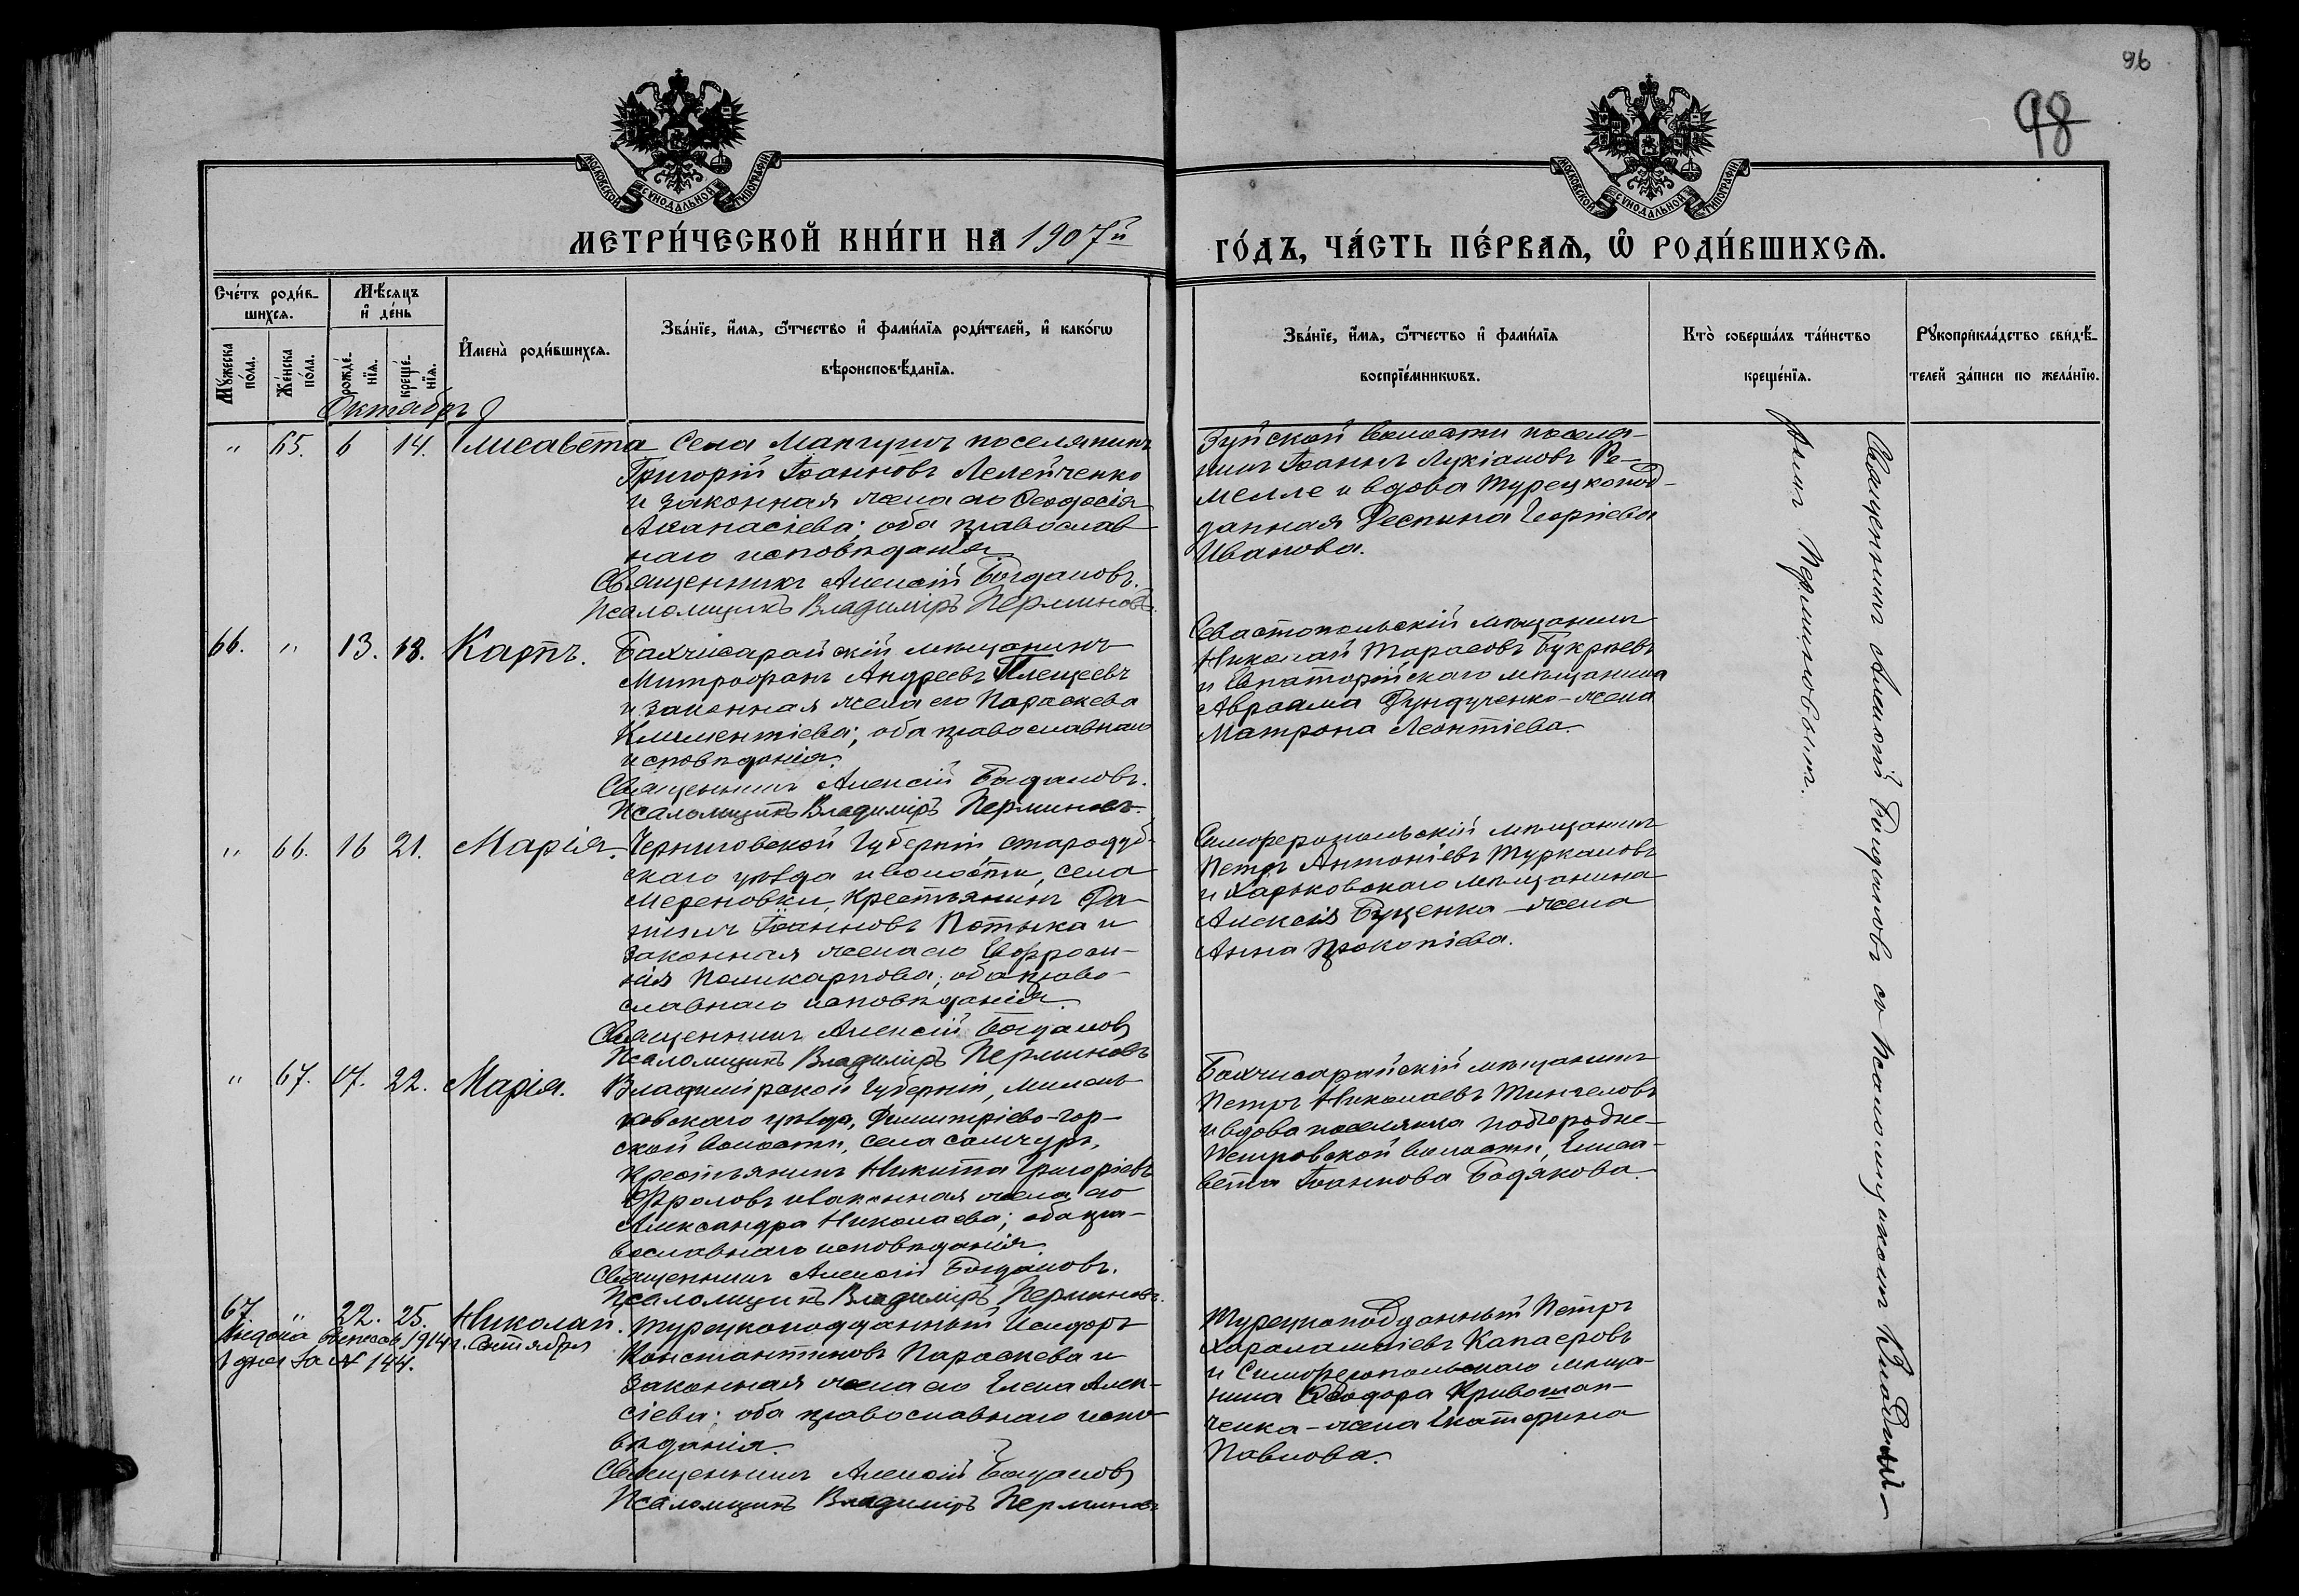 96
98
МОСКОВСКОЙ СѴНОДАЛЬНОЙ ТИПОГРАФІИ
МОСКОВСКОЙ СѴНОДАЛЬНОЙ ТИПОГРАФІИ
МЕТРИ́ЧЕСКОЙ КНИ́ГИ НА 1907й
ГО́ДЪ, ЧА́СТЬ ПЕ́РВАѦ, Ѡ҆ РОДИ́ВШИХСѦ.
Сче́тъ роди́в-
шихсѧ.
Мѣ́сѧцъ
и҆ де́нь
Мꙋ́жеска
по́ла.
Же́нска
по́ла.
рожде́-
нїѧ.
креще́-
нїѧ.
И҆мена̀ роди́вшихсѧ.
Зва́нїе, и҆́мѧ, ѻ҆́тчество и҆ фами́лїѧ роди́телей, и҆ како́гѡ
вѣроисповѣ́данїѧ.
Зва́нїе, и҆́мѧ, ѻ҆́тчество и҆ фами́лїѧ
воспрїе́мникѡвъ.
Кто̀ соверша́лъ та́инство
креще́нїѧ.
Рꙋкоприкла́дство свидѣ́-
телей за́писи по жела́нїю.
Октябрь
" 65. 6 14. Елисавета
Села Мангушъ поселянинъ
Григорій Іоанновъ Лелейченко
и законная жена его Ѳеодосія
Аѳанасіева; оба православ-
наго исповѣданія.
Священникъ Алексій Богдановъ.
Псаломщикъ Владиміръ Перминовъ.
Зуйской волости поселя-
нинъ Іоаннъ Лукіановъ Ре-
мелле и вдова турецкопод-
данная Деспина Георгіева
Иванова.
66. " 13. 18. Карпъ.
Бахчисарайскій мѣщанинъ
Митрофанъ Андреевъ Плещеевъ
и законная жена его Параскева
Климентіева; оба православнаго
исповѣданія.
Священникъ Алексій Богдановъ.
Псаломщикъ Владиміръ Перминовъ.
Севастопольскій мѣщанинъ
Николай Тарасовъ Букрѣевъ
и Евпаторійскаго мѣщанина
Авраама Фундученко - жена
Матрона Леонтіева.
" 66. 16 21. Марія.
Черниговской губерніи стародуб-
скаго уѣзда и волости, села
Мереновки, крестьянинъ Да-
ніилъ Іоанновъ Потыка и
законная жена его Евфроси-
нія Поликарпова; оба право-
славнаго исповѣданія.
Священникъ Алексій Богдановъ
Псаломщикъ Владиміръ Перминовъ
Симферопольскій мѣщанинъ
Петръ Антоніевъ Туркаловъ
и Харьковскаго мѣщанина
Алексія Буценка - жена
Анна Прокопіева.
" 67. 17. 22. Марія.
Владимірской губерніи, Мелен-
ковскаго уѣзда, Димитріево-гор-
ской волости, села
крестьянинъ Никита Григоріевъ
Фроловъ и законная жена его
Александра Николаева; оба пра-
вославнаго исповѣданія.
Священникъ Алексій Богдановъ.
Псаломщикъ Владиміръ Перминовъ.
Бахчисарайскій мѣщанинъ
Петръ Николаевъ
и вдова поселянка Подгородне-
Петровской волости, Елиса-
вета Іоаннова Бодякова.
67 " 22. 25. Николай.
1914 г. Сентября
1 дня за № 144.
Турецкоподданный Исидоръ
Константиновъ Параскева и
законная жена его Елена Алек-
сіева; оба православнаго испо-
вѣданія.
Священникъ Алексій Богдановъ
Псаломщикъ Владиміръ Перминовъ
Турецкоподданный Петръ
Харалампіевъ
и Симферопольскаго мѣща-
нина Ѳеодора Кривошап-
ченка - жена Екатерина
Павлова.
Священникъ Алексій Богдановъ съ псаломщикомъ Влади-
міромъ Перминовымъ.